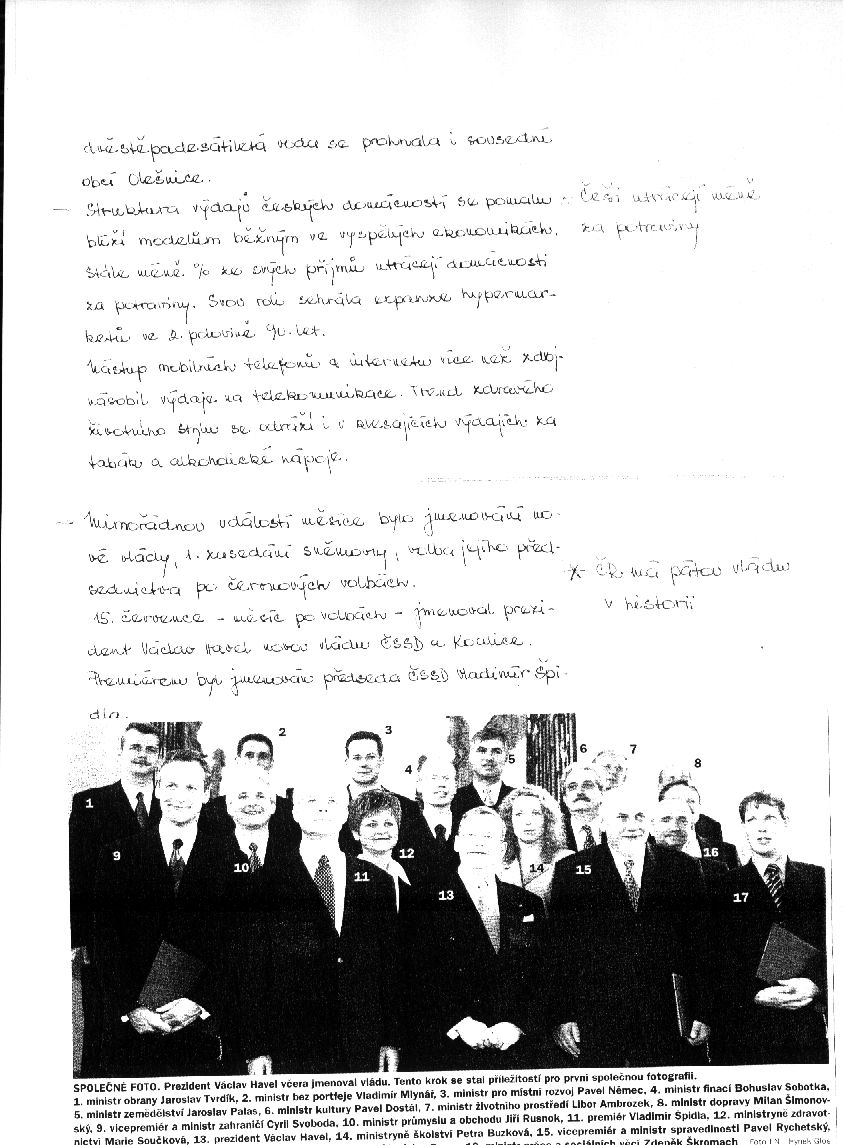 dvěstěpadesátiletá voda se prohnala i sousední
obcí Olešnice.
— Struktura výdajů českých domácností se pomalu
blíží modelům běžným ve vyspělých ekonomikách.
Stále méně % ze svých příjmů utrácejí domácnosti
za potraviny. Svou roli sehrála expanze hypermar-
ketů ve 2. polovině 90. let.
Nástup mobilních telefonů a internetu více než zdvoj-
násobil výdaje na telekomunikace. Trend zdravého
životního stylu se odráží i v klesajících výdajích za
tabák a alkoholické nápoje.
- Češi utrácejí méně
za potraviny
— Mimořádnou událostí měsíce bylo jmenování no-
vé vlády, 1. zasedání sněmovny, volba jejího před-
sednictva po červnových volbách.
15. července - měsíc po volbách - jmenoval prezi-
dent Václav Havel novou vládu ČSSD a Koalice.
Premiérem byl jmenován předseda ČSSD Vladimír Špi-
dla.
* ČR má pátou vládu
v historii
1
2
3
4
5
6
7
8
9
10
11
12
13
14
15
16
17
SPOLEČNÉ FOTO. Prezident Václav Havel včera jmenoval vládu. Tento krok se stal příležitostí pro první společnou fotografii.
1. ministr obrany Jaroslav Tvrdík, 2. ministr bez portfeje Vladimír Mlynář, 3. ministr pro místní rozvoj Pavel Němec, 4. ministr finací Bohuslav Sobotka,
5. ministr zemědělství Jaroslav Palas, 6. ministr kultury Pavel Dostál, 7. ministr životního prostředí Libor Ambrozek, 8. ministr dopravy Milan Šimonov-
ský, 9. vicepremiér a ministr zahraničí Cyril Svoboda, 10. ministr průmyslu a obchodu Jiří Rusnok, 11. premiér Vladimír Špidla, 12. ministryně zdravot-
nictví Marie Součková, 13. prezident Václav Havel, 14. ministryně školství Petra Buzková, 15. vicepremiér a ministr spravedlnosti Pavel Rychetský,
sociálních věcí Zdeněk Škromach Foto LN Hynek Glos